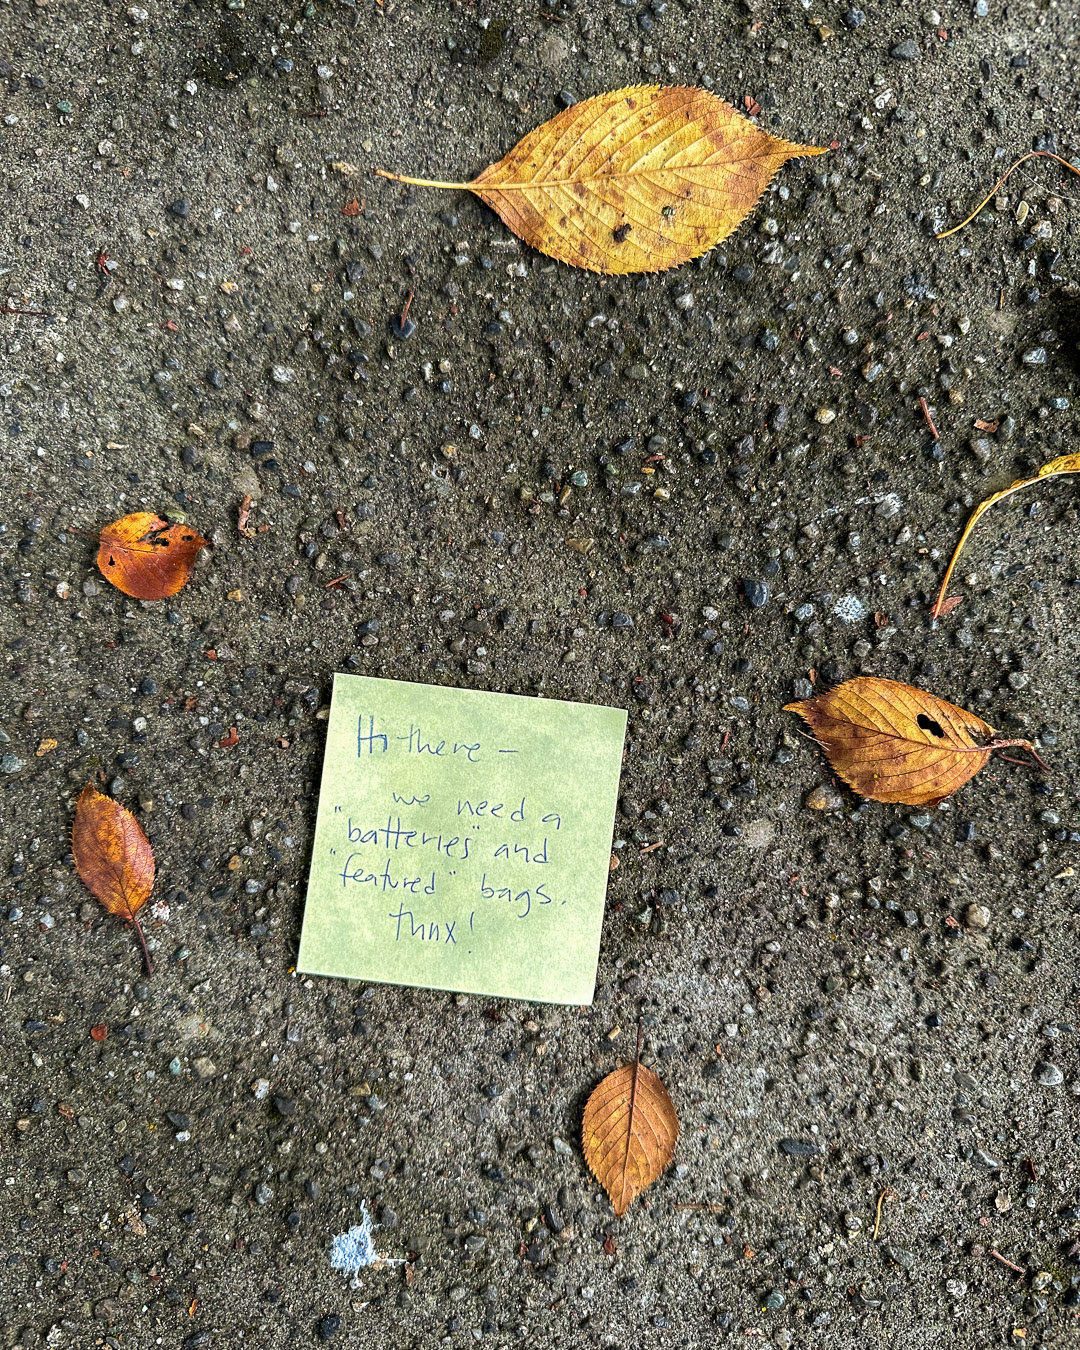 Hi there –
we need a
"batteries" and
"featured" bags.
thnx!